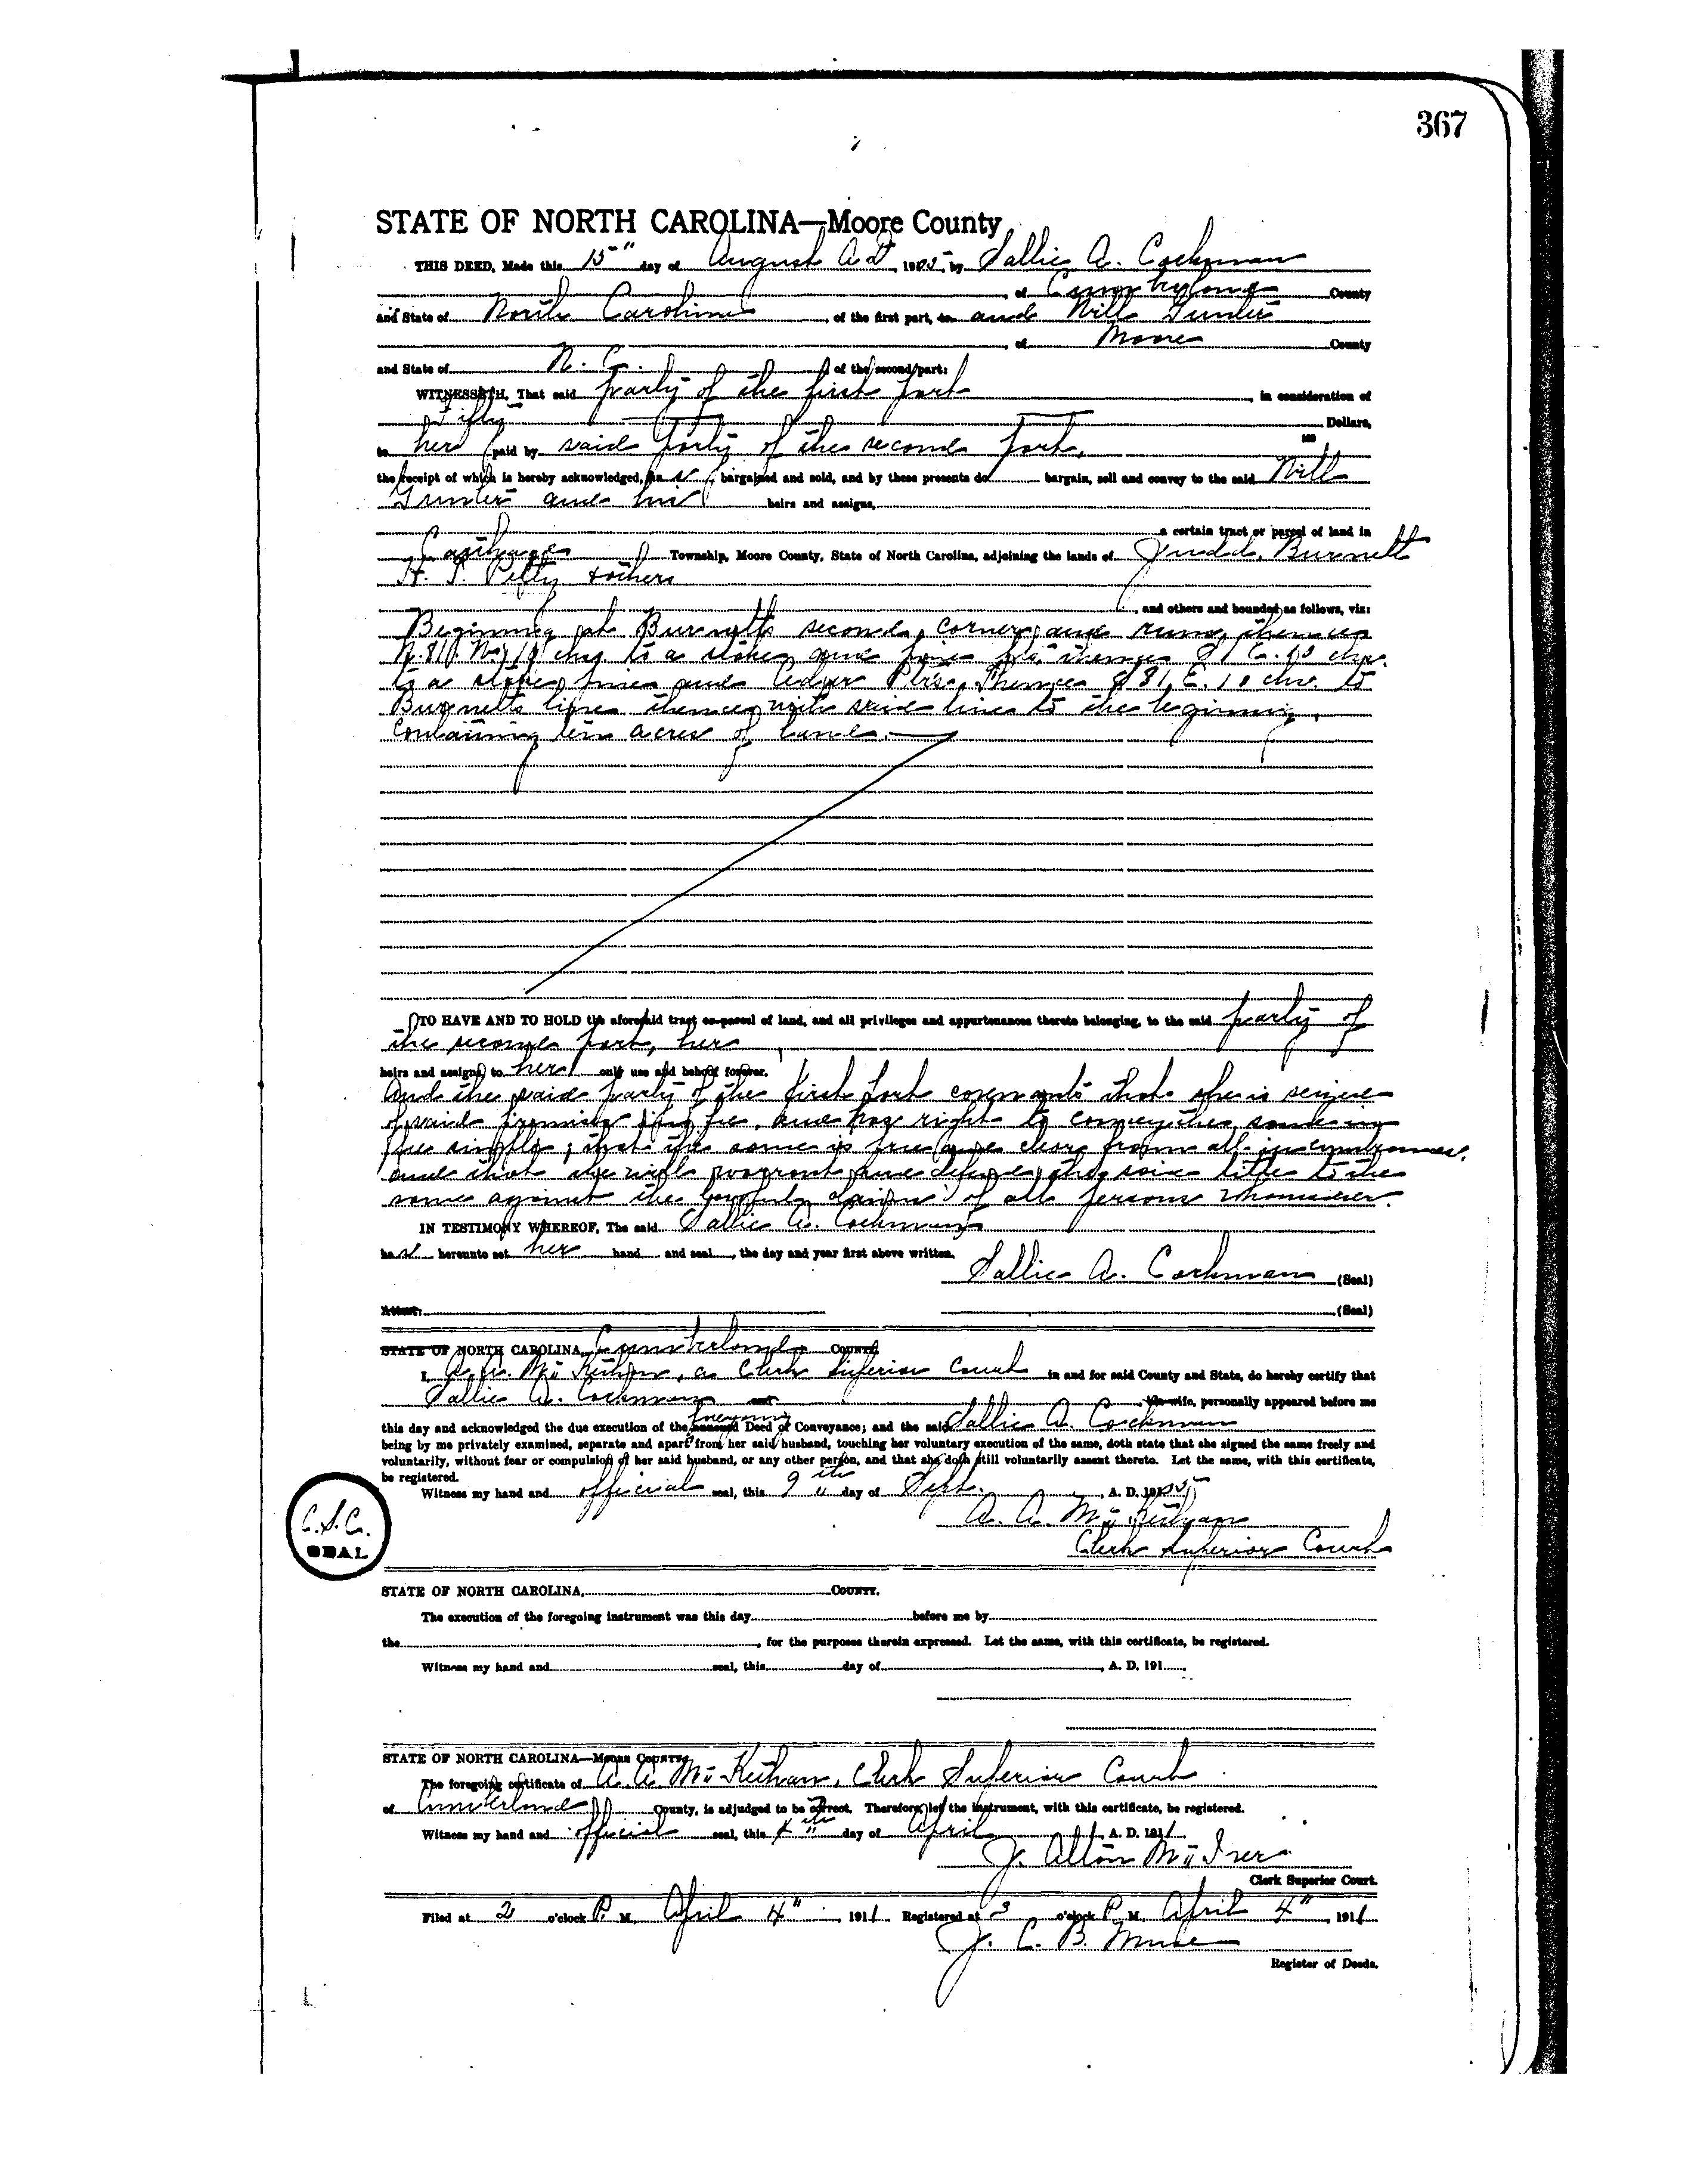 367
STATE OF NORTH CAROLINA—Moore County
THIS DEED, Made this 15" day of August A D 1905, by Sallie A. Cockman
of Cumberland County
and State of North Carolina, of the first part, to and Will Gunter
of Moore County
and State of N. C. of the second part:
WITNESSETH, That said party of the first part, in consideration of
Fifty Dollars,
to her paid by said party of the second part,
the receipt of which is hereby acknowledged, has bargained and sold, and by these presents do bargain, sell and convey to the said Will
Gunter and his heirs and assigns,
a certain tract or parcel of land in
Carthage Township, Moore County, State of North Carolina, adjoining the lands of Judd, Burnett
H. P. Petty & others
, and others and bounded as follows, viz:
Beginning at Burnetts second corner and runs thence
N. 81 W. 10 chs. to a stake pine thence 10 chs.
to a stake, pine and Ptrs. Thence S 81 E. 10 chs. to
Burnetts line thence with said line to the beginning.
Containing ten acres of land.
TO HAVE AND TO HOLD the aforesaid tract or parcel of land, and all privileges and appurtenances thereto belonging, to the said party of
the second part, her
heirs and assigns, to her only use and behoof forever.
And the said party of the first part covenants that she is seized
of said premises in fee, and has right to convey the same in
fee simple; that the same is free and clear from all incumbrances,
and that she will warrant and defend the said title to the
same against the lawful claims of all persons whomsoever.
IN TESTIMONY WHEREOF, The said Sallie A. Cockman
has hereunto set her hand and seal, the day and year first above written.
Sallie A. Cockman (Seal)
Attest: (Seal)
STATE OF NORTH CAROLINA, Cumberland COUNTY
I, A. A. McKethan, a Clerk Superior Court in and for said County and State, do hereby certify that
Sallie A. Cockman and his wife, personally appeared before me
this day and acknowledged the due execution of the annexed foregoing Deed of Conveyance; and the said Sallie A. Cockman
being by me privately examined, separate and apart from her said husband, touching her voluntary execution of the same, doth state that she signed the same freely and
voluntarily, without fear or compulsion of her said husband, or any other person, and that she doth still voluntarily assent thereto. Let the same, with this certificate,
be registered.
Witness my hand and official seal, this 9th day of Sept., A. D. 1905
A. A. McKethan
C.S.C. SEAL
Clerk Superior Court
STATE OF NORTH CAROLINA, COUNTY.
The execution of the foregoing instrument was this day before me by
the, for the purposes therein expressed. Let the same, with this certificate, be registered.
Witness my hand and seal, this day of, A. D. 191
STATE OF NORTH CAROLINA—MOORE COUNTY
The foregoing certificate of A. A. McKethan, Clerk Superior Court
of Cumberland County, is adjudged to be correct. Therefore, let the instrument, with this certificate, be registered.
Witness my hand and official seal, this 4th day of April, A. D. 1911
J. Alton McIver
Clerk Superior Court.
Filed at 2 o'clock P. M. April 4" 1911 Registered at 3 o'clock P. M. April 4", 1911
J. C. B. Muse
Register of Deeds.